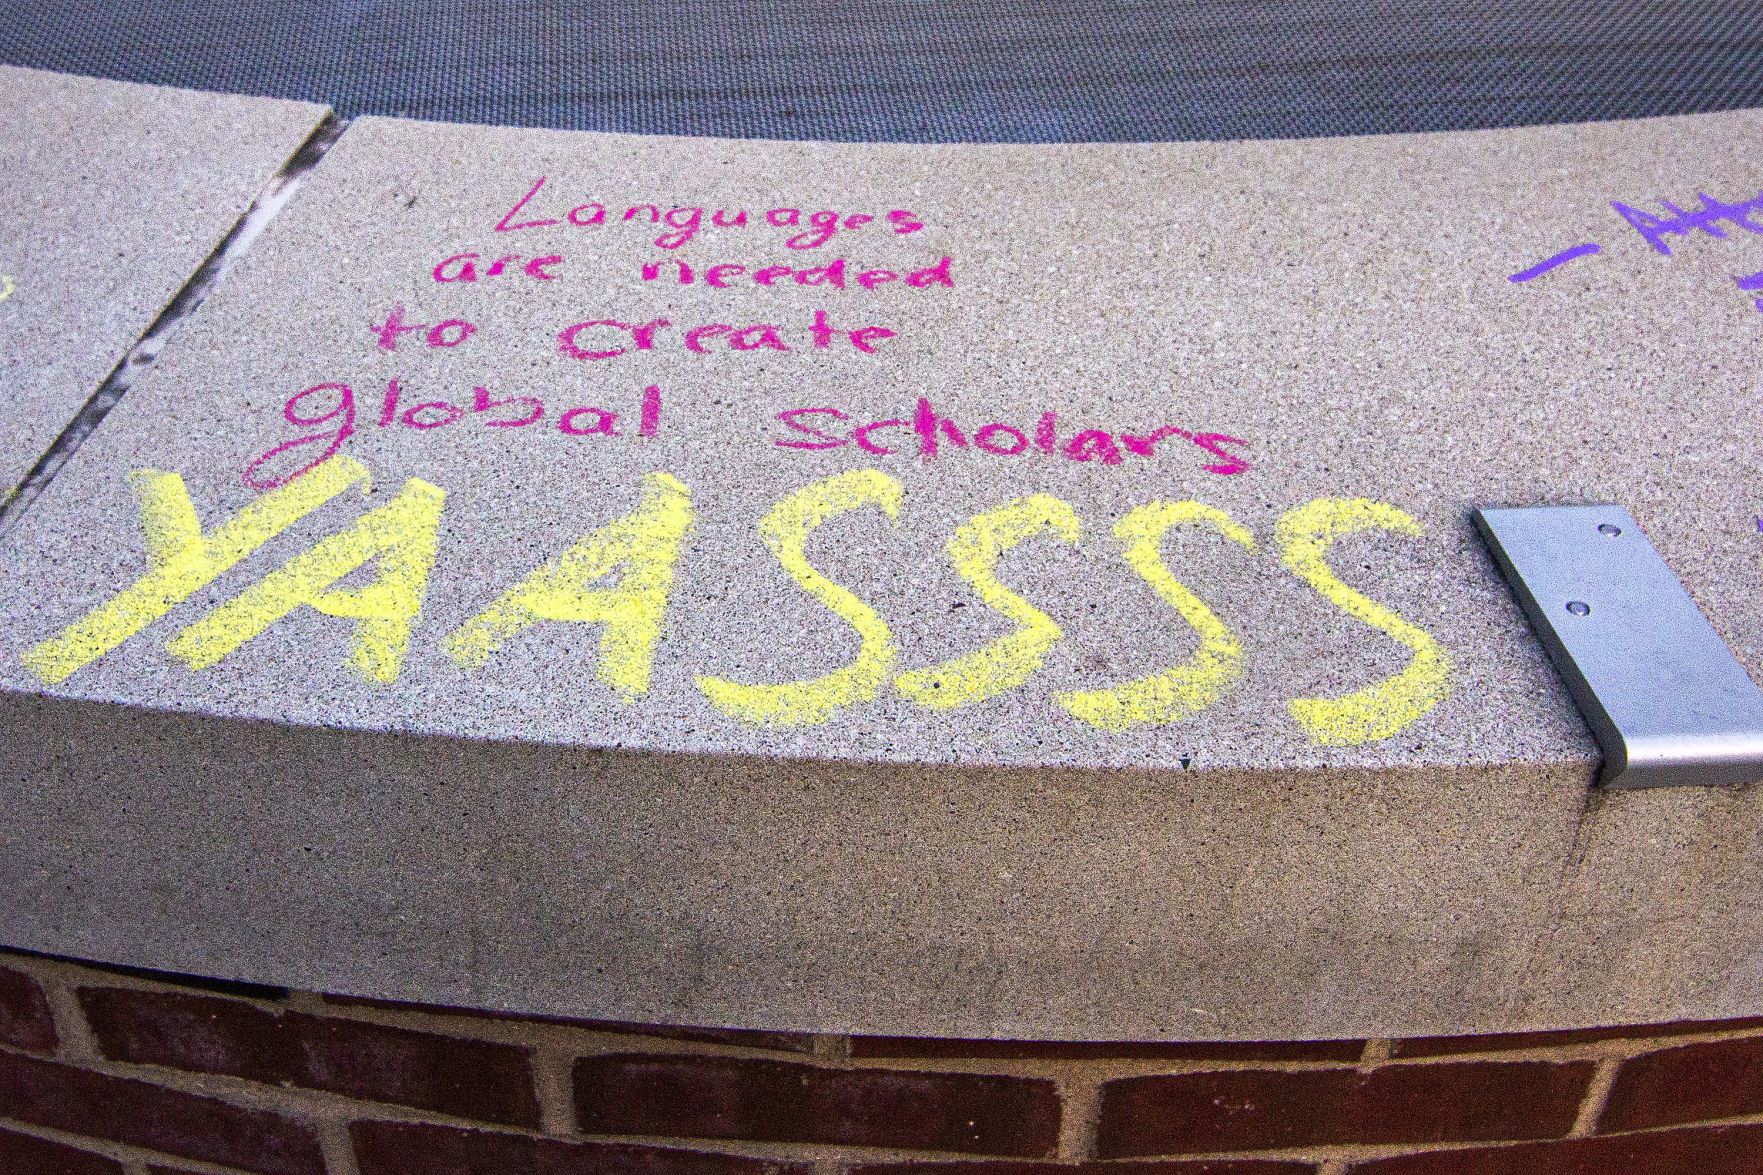 Languages
are needed
to create
global scholars
YAASSSS